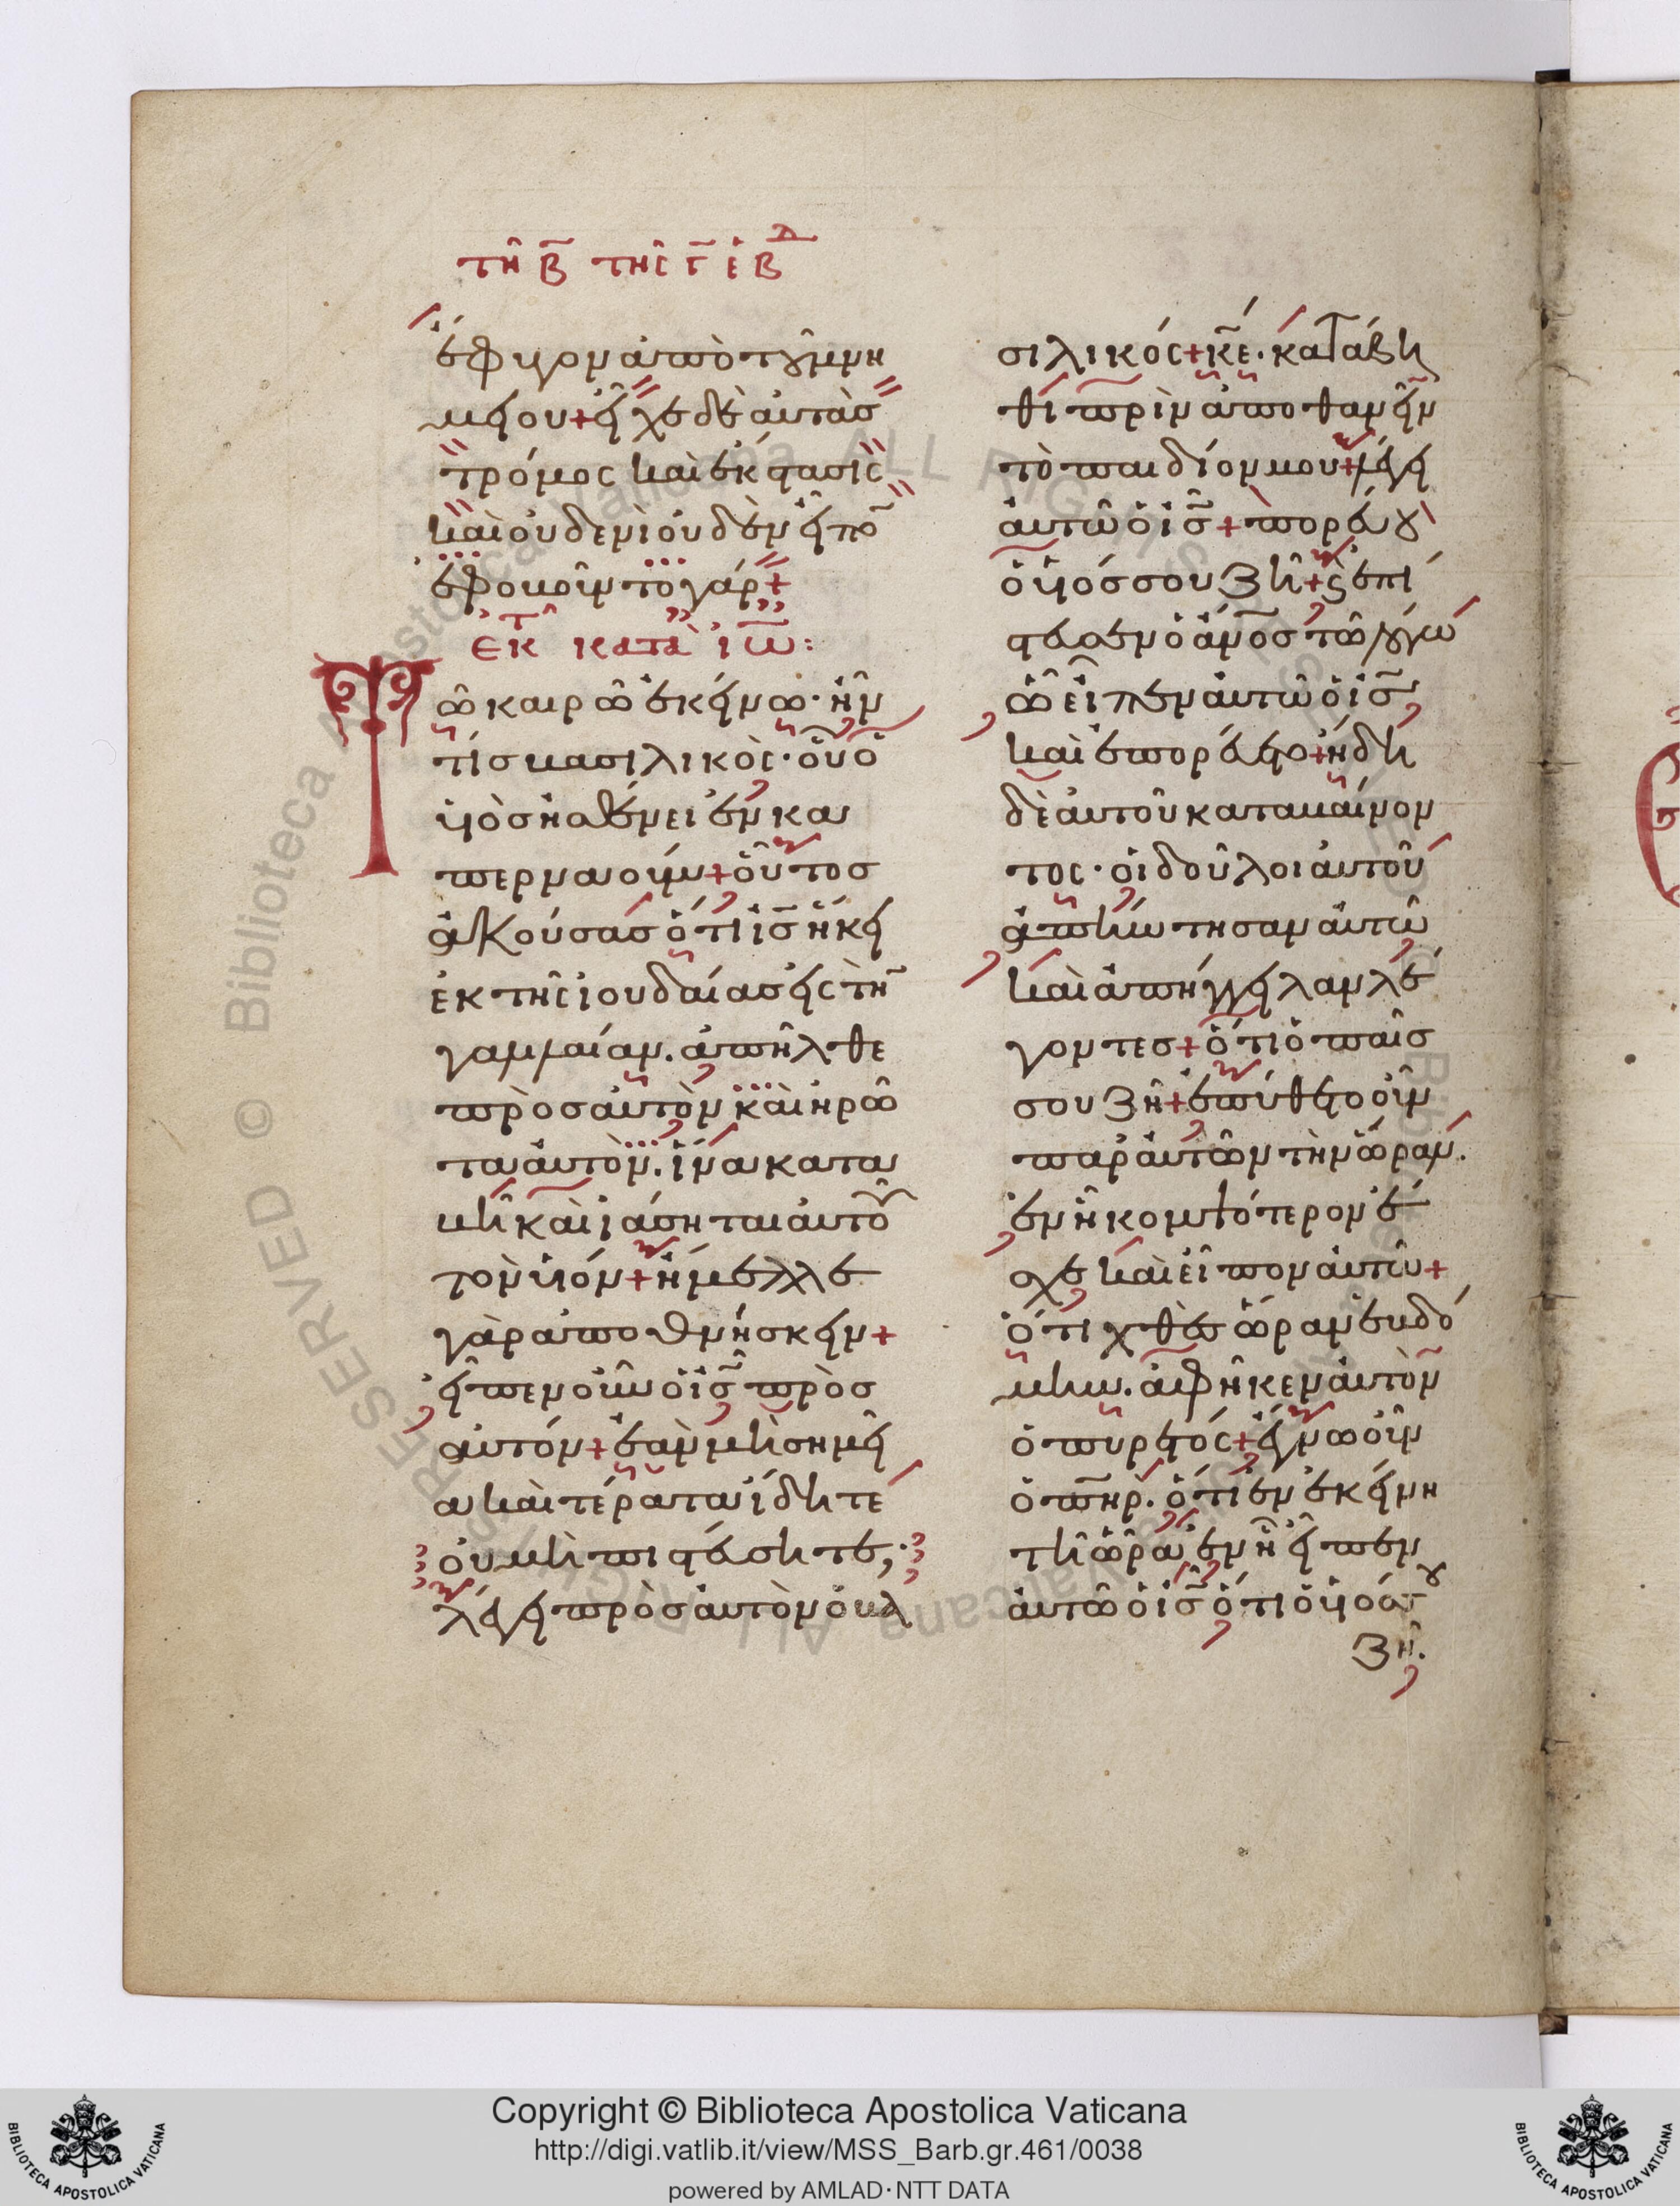 τῆ β̅ τῆς γ̅ ἑβδ
ἔφυγον ἀπὸ τοῦ μνη
μείου + εἶχε δὲ αὐτὰσ
τρόμος καὶ ἔκστασις
καὶ οὐδενὶ οὐδὲν εἶπο̅
ἐφοβοῦντο γάρ +
ἐκ τ κατὰ ἰω̅:
Τῶ καιρῶ ἐκείνω · ἦν
τίσ βασιλικὸς · οὗ ὁ
υἱὸσ ἠσθένει ἐν κα
περναούμ + οὗτοσ
ἀκούσασ ὅτι ἰσ̅ ἥκει
ἐκ τῆς ἰουδαίασ εἰς τὴ̅
γαλιλαίαν. ἀπῆλθε
πρὸσ αὐτὸν καὶ ἠρώ
τα αὐτὸν. ἵνα κατα
βῆ καὶ ἰάσηται αὐτοῦ
τὸν υἱόν + ἤμελλε
γὰρ ἀποθνήσκειν +
εἶπεν οὖν ὁ ἰσ̅ πρὸσ
αὐτόν + ἐὰν μὴ σημεῖ
α καὶ τέρατα ἴδητε
οὐ μὴ πιστεύσητε;
λέγει πρὸσ αὐτὸν ὁ βα
σιλικός + κε̅ · κατάβη
θι πρὶν ἀποθανεῖν
τὸ παιδίον μου + λέγει
αὐτῶ ὁ ἰσ̅ + πορεύου
ὁ υἱόσ σου ζῆ + ϗ ἐπί
στευσεν ὁ ἄνοσ̅ τῶ λόγω
ὧ εἶπεν αὐτῶ ὁ ἰσ̅
καὶ ἐπορεύετο + ἤδη
δὲ αὐτοῦ καταβαίνον
τος · οἱ δοῦλοι αὐτοῦ
ἀπήντησαν αὐτῶ
καὶ ἀπήγγειλαν λέ
γοντεσ + ὅτι ὁ παῖσ
σου ζῆ + ἐπύθετο οὖν
παρ αὐτῶν τὴν ὥραν.
ἐν ἧ κομψότερον ἔ
σχε καὶ εἶπον αὐτῶ +
ὅτι χθὲσ ὥραν ἑβδό
μην. ἀφῆκεν αὐτὸν
ὁ πυρετός + ἔγνω οὖν
ὁ πη̅ρ. ὅτι ἐν ἐκείνη
τῆ ὥρα ἐν ἧ εἶπεν
αὐτῶ ὁ ἰσ̅ ὅτι ὁ υἱόσ σου
ζῆ.
Copyright © Biblioteca Apostolica Vaticana
http://digi.vatlib.it/view/MSS_Barb.gr.461/0038
powered by AMLAD·NTT DATA